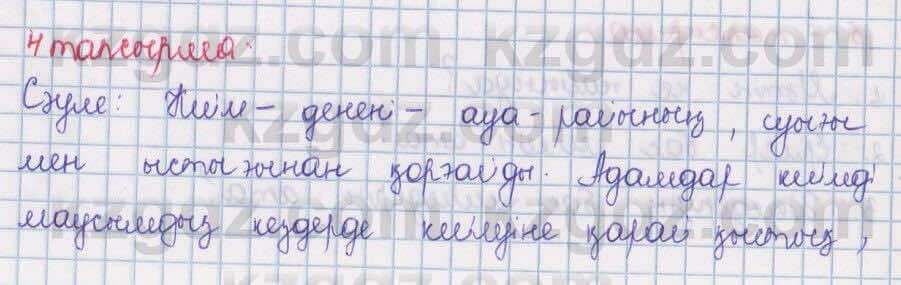 4 тапсырма:
Сәуле: Киім - денені - ауа-райының, суығы
мен ыстығынан қорғайды. Адамдар киімді
маусымдық кездерде киілуіне қарай қыстық,